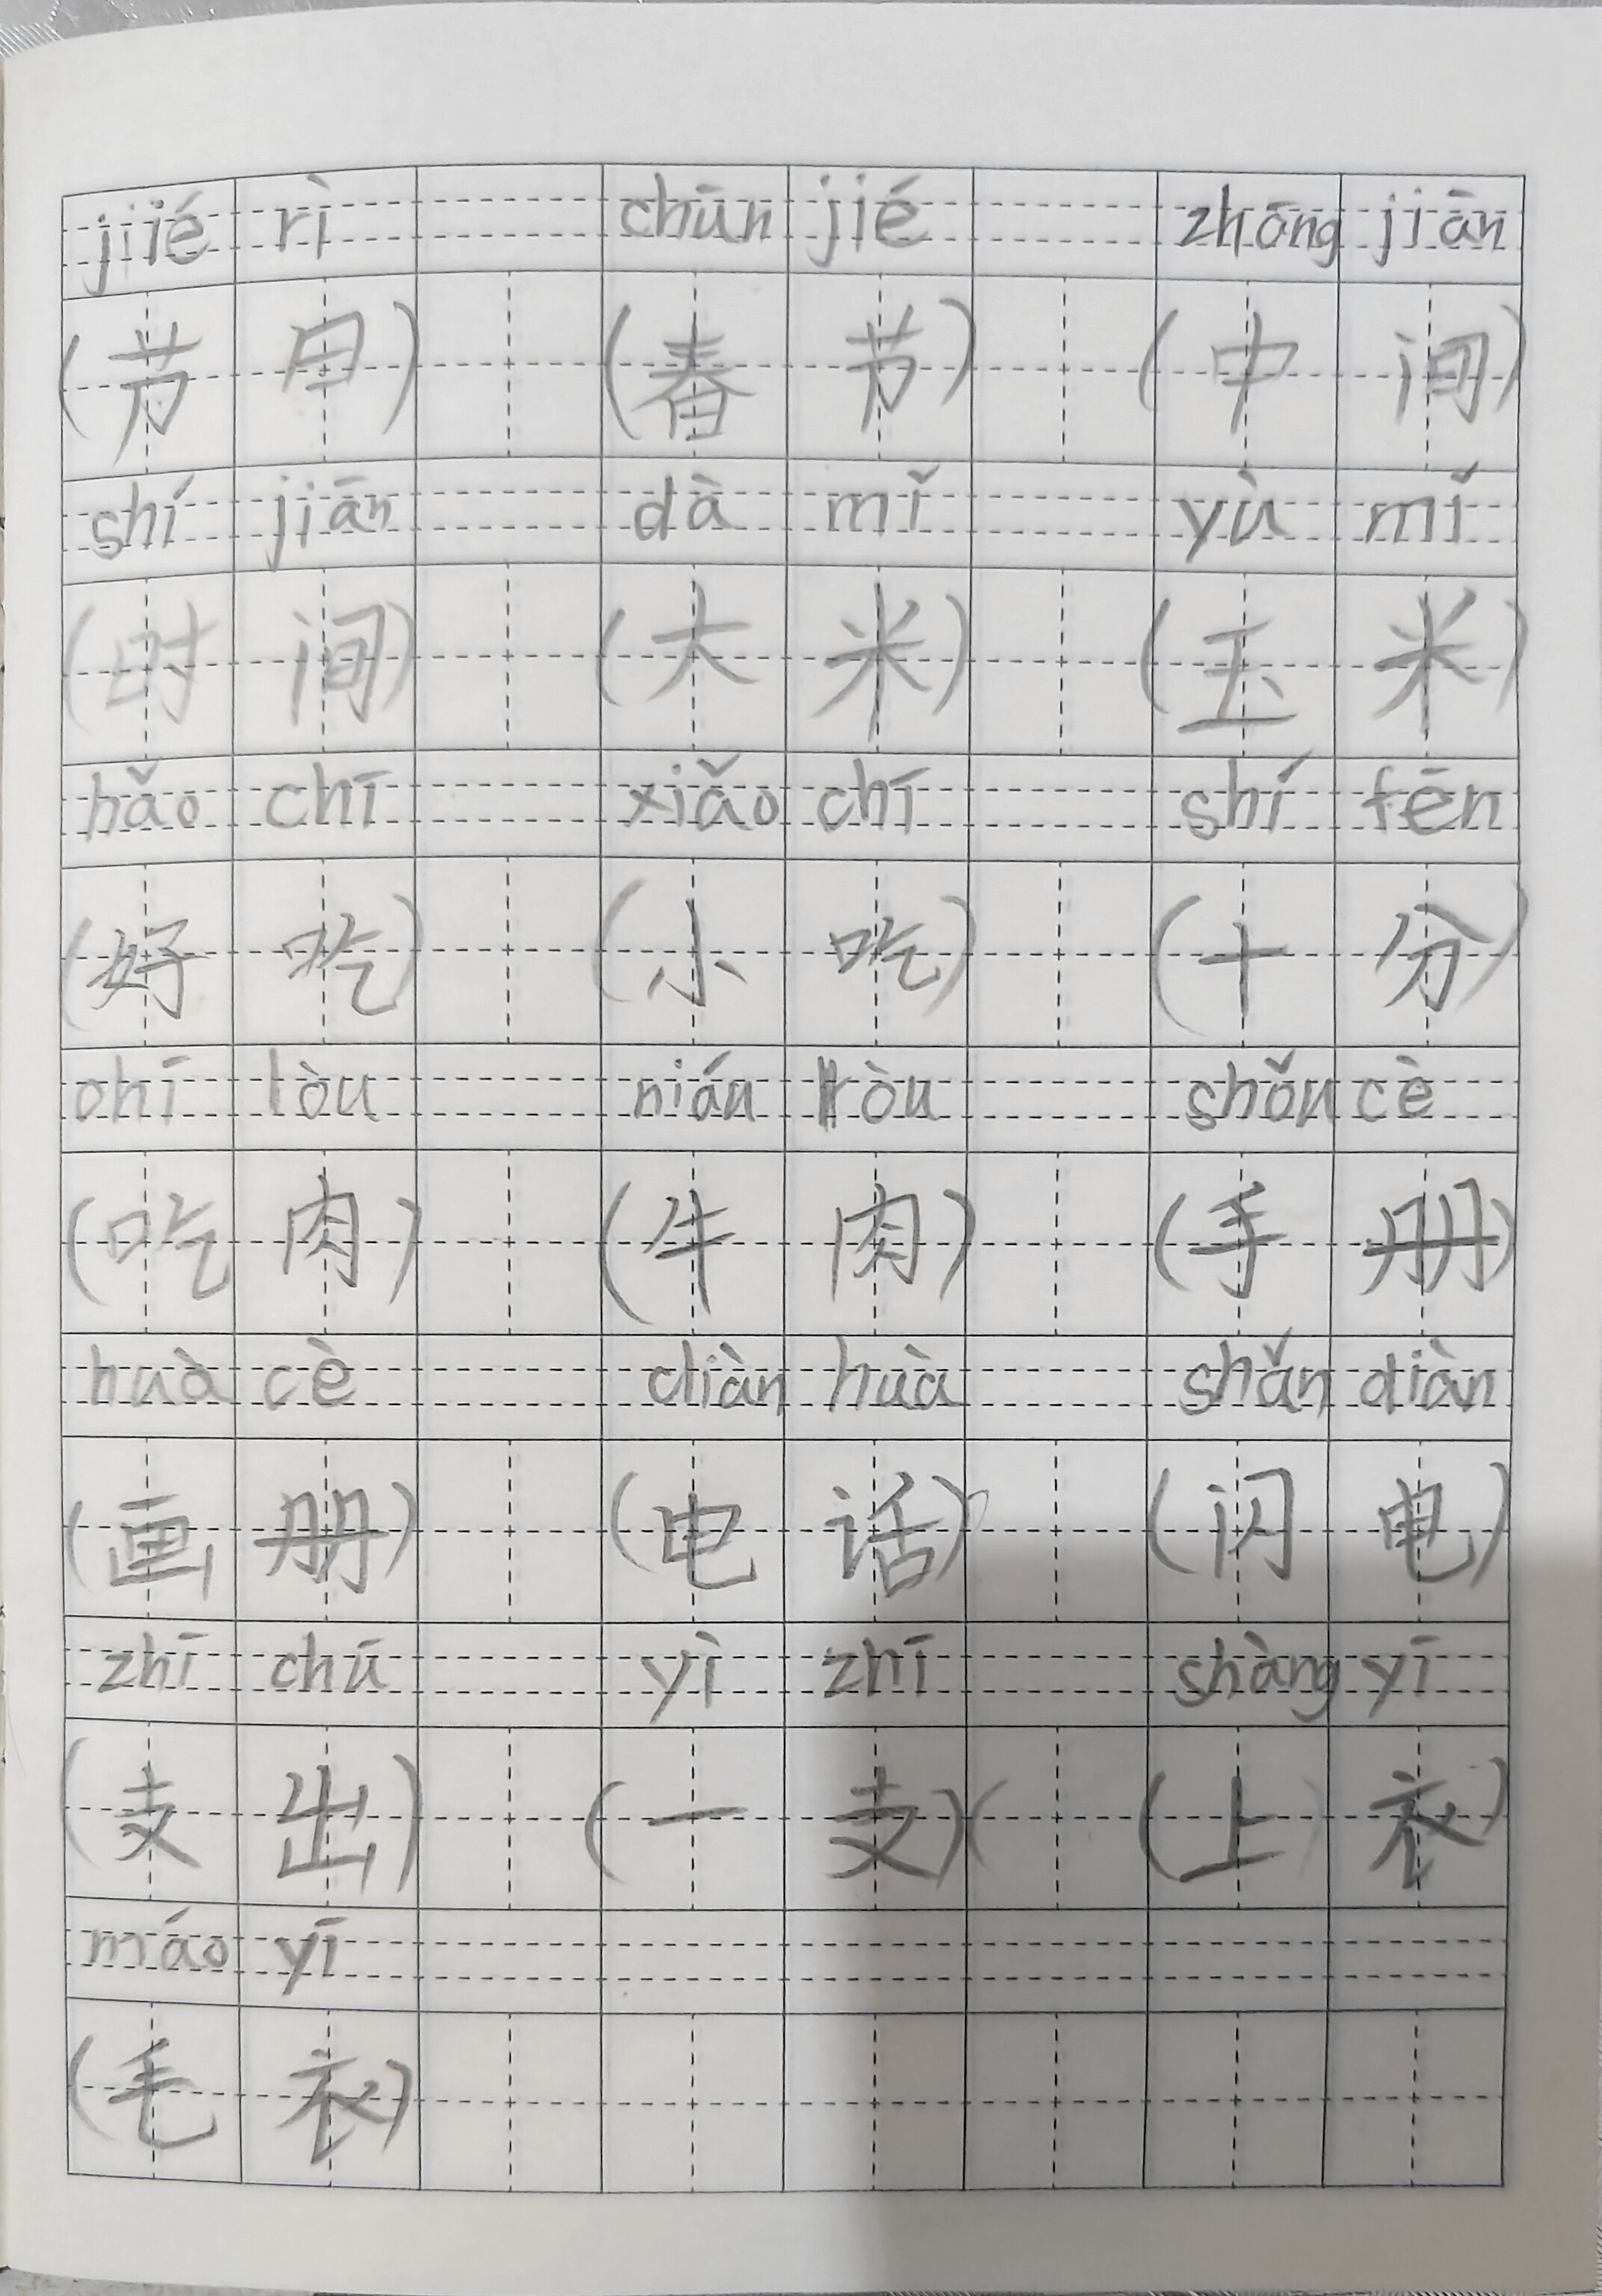 jié rì chūn jié zhōng jiān
(节日) (春节) (中间)
shí jiān dà mǐ yù mǐ
(时间) (大米) (玉米)
hǎo chī xiǎo chī shí fēn
(好吃) (小吃) (十分)
chī ròu niú ròu shǒu cè
(吃肉) (牛肉) (手册)
huà cè diàn huà shǎn diàn
(画册) (电话) (闪电)
zhī chū yì zhī shàng yī
(支出) (一支) (上衣)
máo yī
(毛衣)